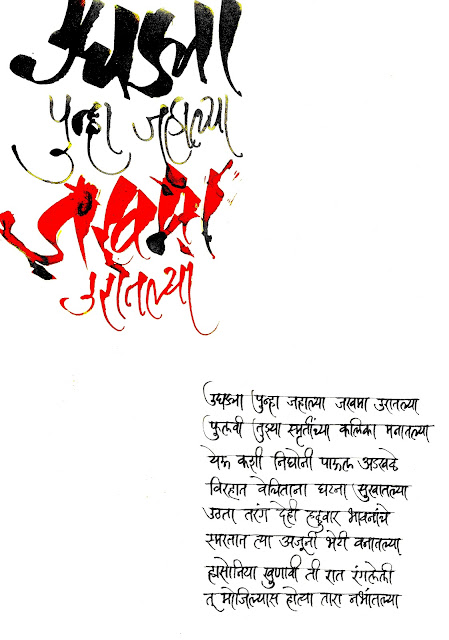 उघड्या
पुन्हा जहाल्या
जखमा
उरातल्या
उघड्या पुन्हा जहाल्या जखमा उरातल्या
फुलवी तुझ्या स्मृतींच्या कलिका मनातल्या
येऊ कशी निघोनी पाऊल अडखळे
विरहात वेचिताना घटना सुखातल्या
उठता तरंग देही हळुवार भावनांचे
स्मरतात त्या अजूनी भेटी वनातल्या
ह्मसोनिया खुणावी ती रात रंगलेली
तू मोजिल्यास होत्या तारा नभांतल्या